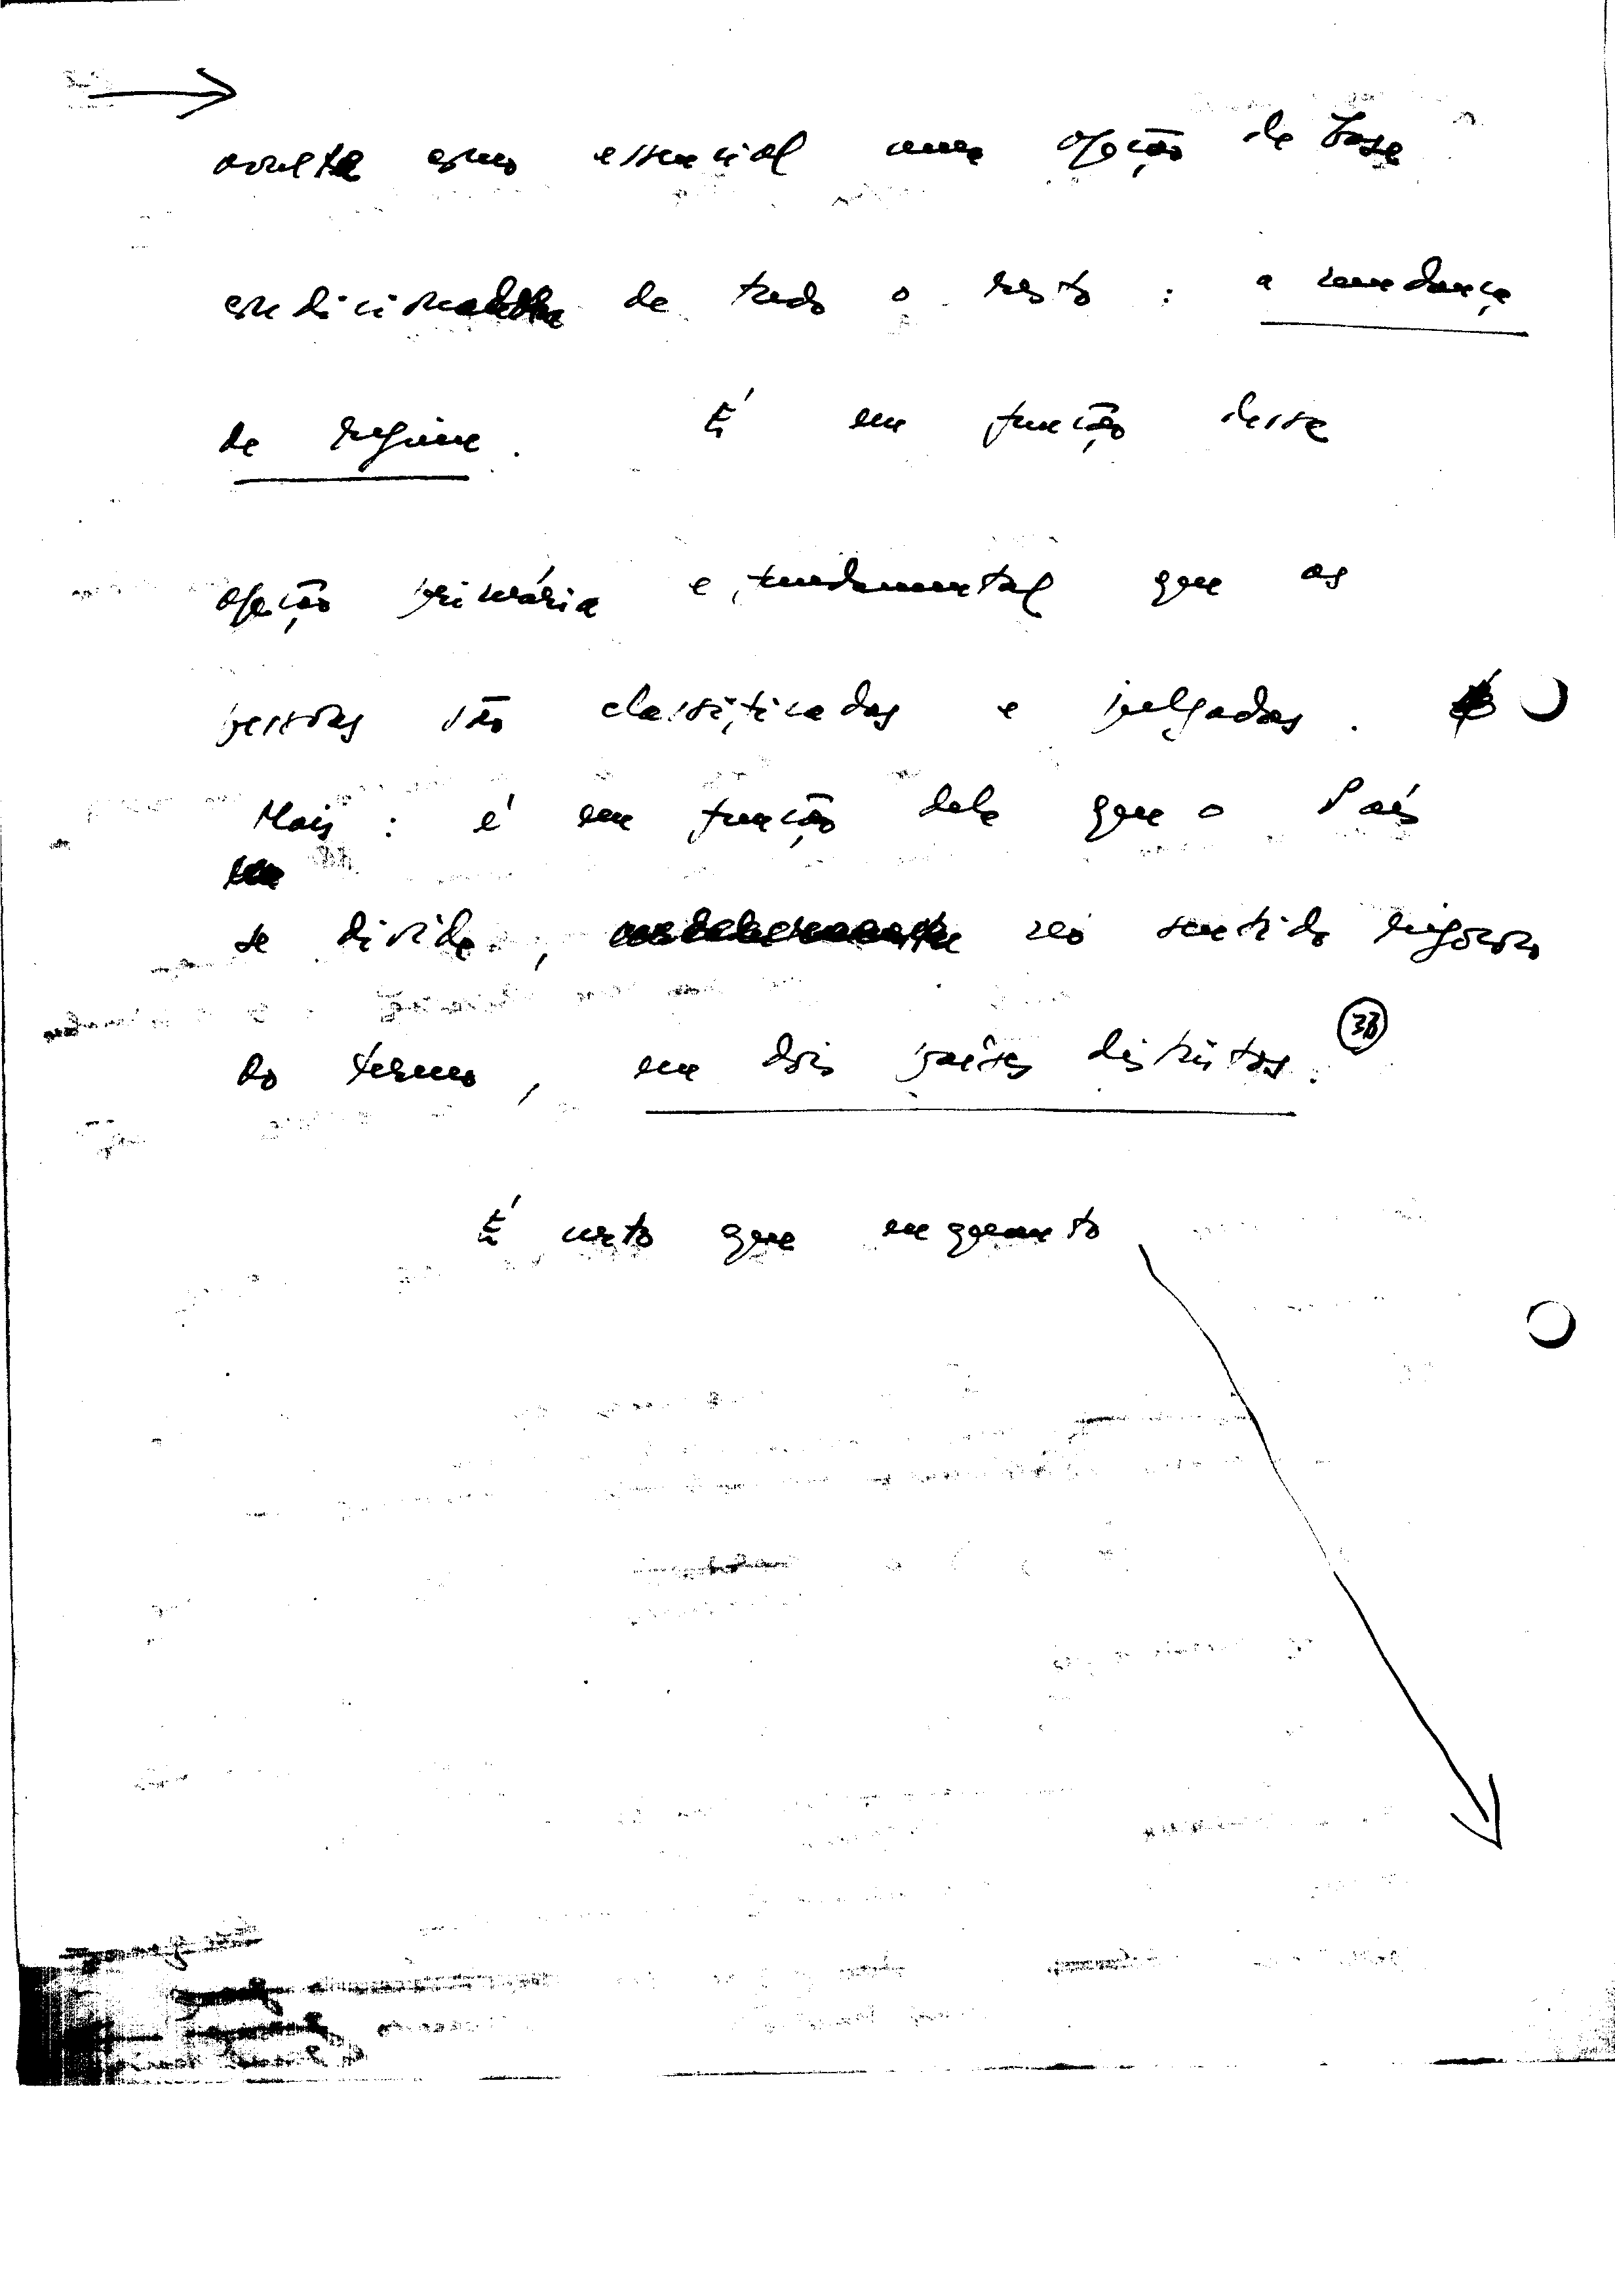 avulta como essencial uma opção de base
condicionante de todo o resto : a mudança
de regime . É em função dessa
opção primária e fundamental que as
pessoas são classificadas e julgadas .
Mais : é em função dela que o País
se divide , no sentido rigoroso
do termo , em dois países distintos . 38
É certo que enquanto